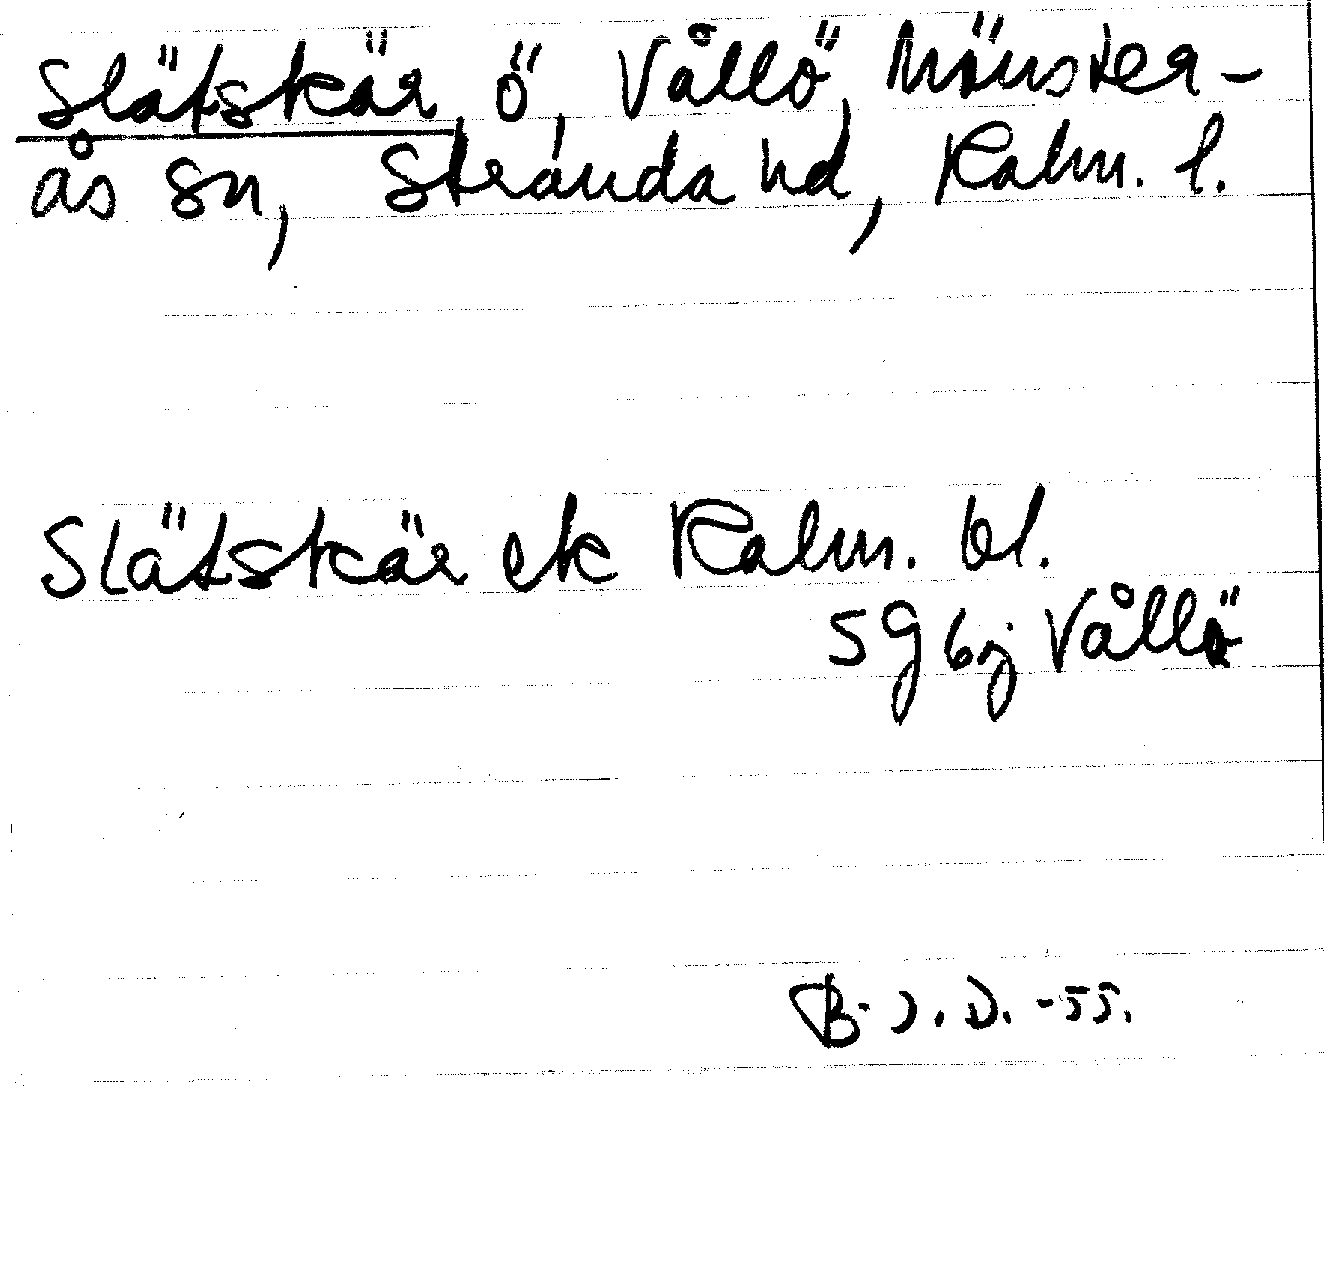 Slätskär, ö, Vållö, Mönster-
ås sn, Stranda hd, Kalm. l.
Slätskär ek Kalm. bl.
5 g bj Vållö
B. J. D. -55.